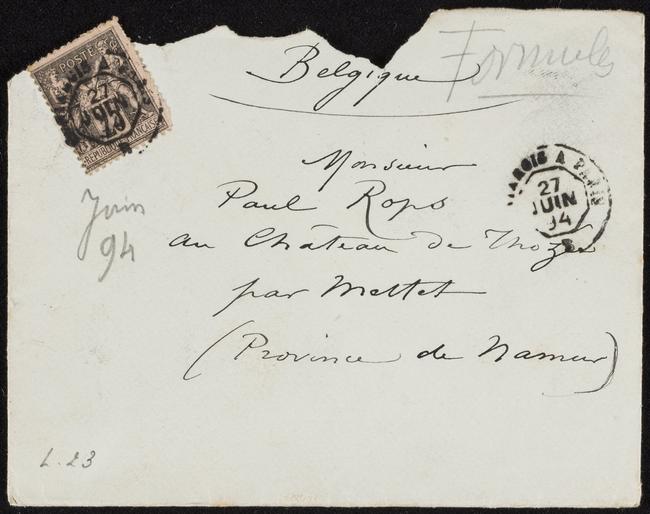 Belgique
Formules
Monsieur
Paul Rops
au Château de Thozée
par Mettet
(Province de Namur)
Juin
94
L. 23
27
JUIN
94
A PARIS
POSTE
27
JUIN
RÉPUBLIQUE FRANÇAISE